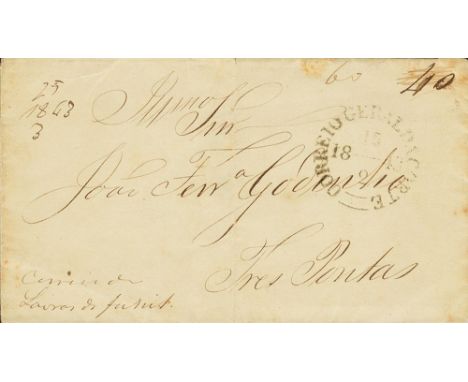 60 40
25
1863
3
Illmo Snr
CORREIO GERAL DA CORTE
18
15
2
João Ferra Godinho
Tres Pontas
Correio de
Lavras do funil.